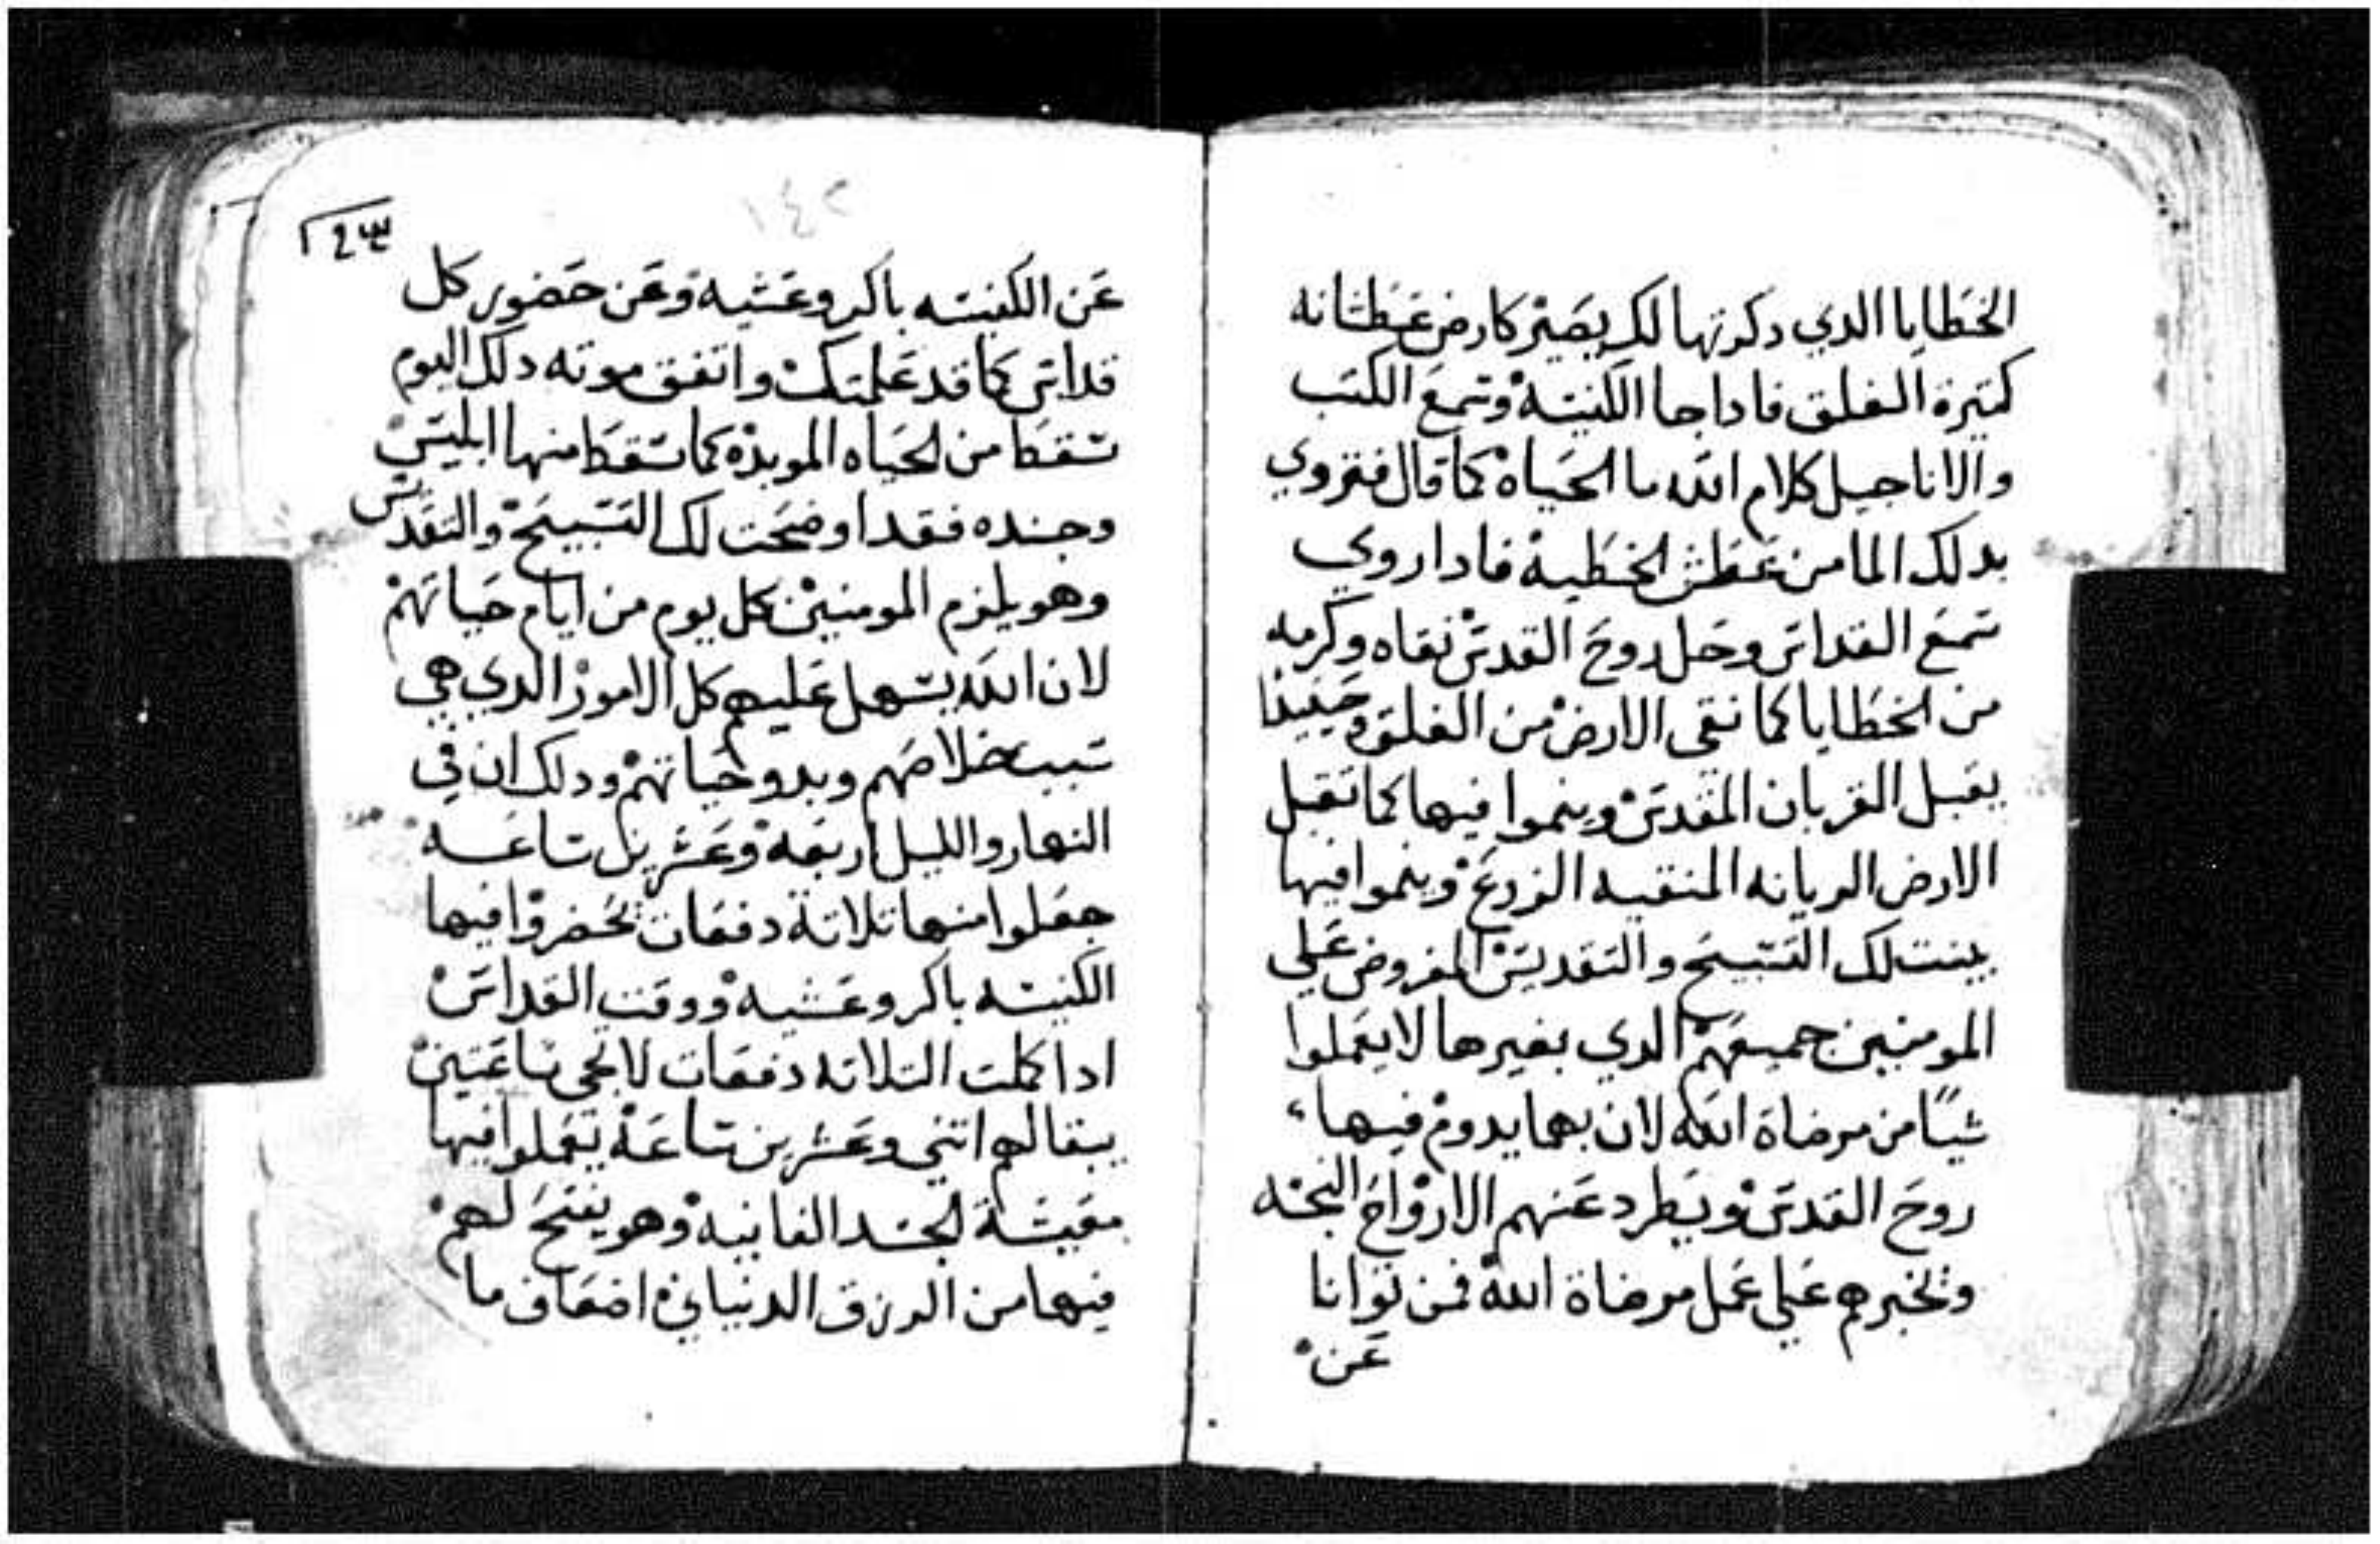 الخطايا الدي دكرتها لك يصير كارض عطشانه
كتيرة الغلق فاداجا الكنيسة وسمع الكتب
والاناجيل كلام الله ما الحياة كما قال فتروي
بدلك الما من عطش الخطية فادا روي
سمع القداس وحل روح القدس نقاه وكرمه
من الخطايا كما نقي الارض من الغلق وحينيذا
يقبل القربان المقدس وينموا فيها كما تقبل
الارض الريانه المنقيه الزرع وينموا فيها
بينت لك التسبيح والتقديس المفروض علي
المومنين جميعهم الدي بغيرها لا يعملوا
شيًا من مرضاة الله لان بهما يدوم فيها
روح القدس ويطرد عنهم الارواح النجسه
وتخبرهم علي عمل مرضاة الله فمن توانا
عن
١٤٢
١٤٣
عن الكنيسه باكر وعشية وعن حضور كل
قداس كما قد علمتك واتفق موته دلك اليوم
سقط من الحياه الموبدة كما سقط منها ابليس
وجنده فقد اوضحت لك التسبيح والتقديس
وهو يلزم المومنين كل يوم من ايام حياتهم
لان الله يسهل عليهم كل الامور الدي هي
سبب خلاصهم وبدو حياتهم ودلك ان في
النهار والليل اربعة وعشرين ساعه
جعلوا منها تلاتة دفعات تحضروا فيها
الكنيسه باكر وعشية ووقت القداس
ادا كملت التلاته دفعات لا تجي ساعتين
يبقا لهم اتني وعشرين ساعة يعملوا فيها
معيشة الجسد الفانية وهو يفتح لهم
فيها من الرزق الدنياني اضعاف ما